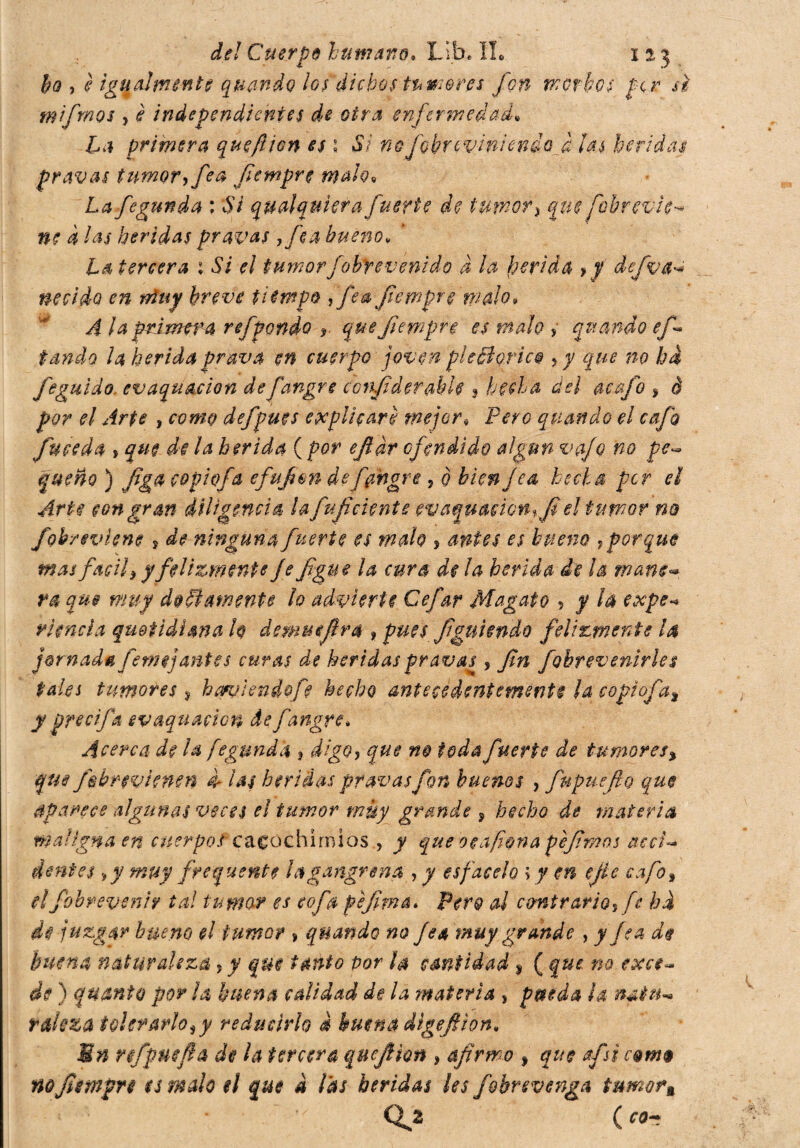 del Cuerpo humano. Lib. II. 123
bo, è igualmente quando los dichos tumores ſon morbos per sì
miſmos, è independientes de otra enfermedad.
La primera queſtion es: Si no ſobreviniendo à las heridas
pravas tumor, ſea ſiempre malo.
La ſegunda: Si qualquiera fuerte de tumor, que ſobrevie-
ne à las heridas pravas, ſea bueno.
La tercera: Si el tumor ſobrevenido à la herida, y deſva-
necido en muy breve tiempo, ſea ſiempre malo.
A la primera reſpondo, que ſiempre es malo, quando eſ-
tando la herida prava en cuerpo joven plectorico, y que no hà
ſeguido evaquacion de ſangre conſiderable, hecha del acaſo, ò
por el Arte, como deſpues explicarè mejor. Pero quando el caſo
ſuceda, que de la herida (por eſtàr ofendido algun vaſo no pe-
queño) ſiga copioſa efuſion de ſangre, ò bien ſea hecha por el
Arte con gran diligencia la ſuficiente evaquacion, ſi el tumor no
ſobreviene, de ninguna fuerte es malo, antes es bueno, porque
mas facil, y felizmente ſe ſigue la cura de la herida de la mane-
ra que muy doctamente lo advierte Ceſar Magato, y la expe-
riencia quotidiana lo demueſtra, pues ſiguiendo felizmente la
jornada ſemejantes curas de heridas pravas, ſin ſobrevenirles
tales tumores, haviendoſe hecho antecedentemente la copioſa,
y preciſa evaquacion de ſangre.
Acerca de la ſegunda, digo, que no toda fuerte de tumores,
que ſobrevienen à las heridas pravas ſon buenos, ſupueſto que
aparece algunas veces el tumor muy grande, hecho de materia
maligna en cuerpos cacochimios, y que ocaſiona pèſimos acci-
dentes, y muy frequente la gangrena, y esfacelo; y en eſte caſo,
el ſobrevenir tal tumor es coſa pèſima. Pero al contrario, ſe hà
de juzgar bueno el tumor, quando no ſea muy grande, y ſea de
buena naturaleza, y que tanto por la cantidad, (que no exce-
de) quanto por la buena calidad de la materia, pueda la natu-
raleza tolerarlo, y reducirlo à buena digeſtion.
En reſpueſta de la tercera queſtion, afirmo, que aſsi como
no ſiempre es malo el que à las heridas les ſobrevenga tumor,
Q2 (co-